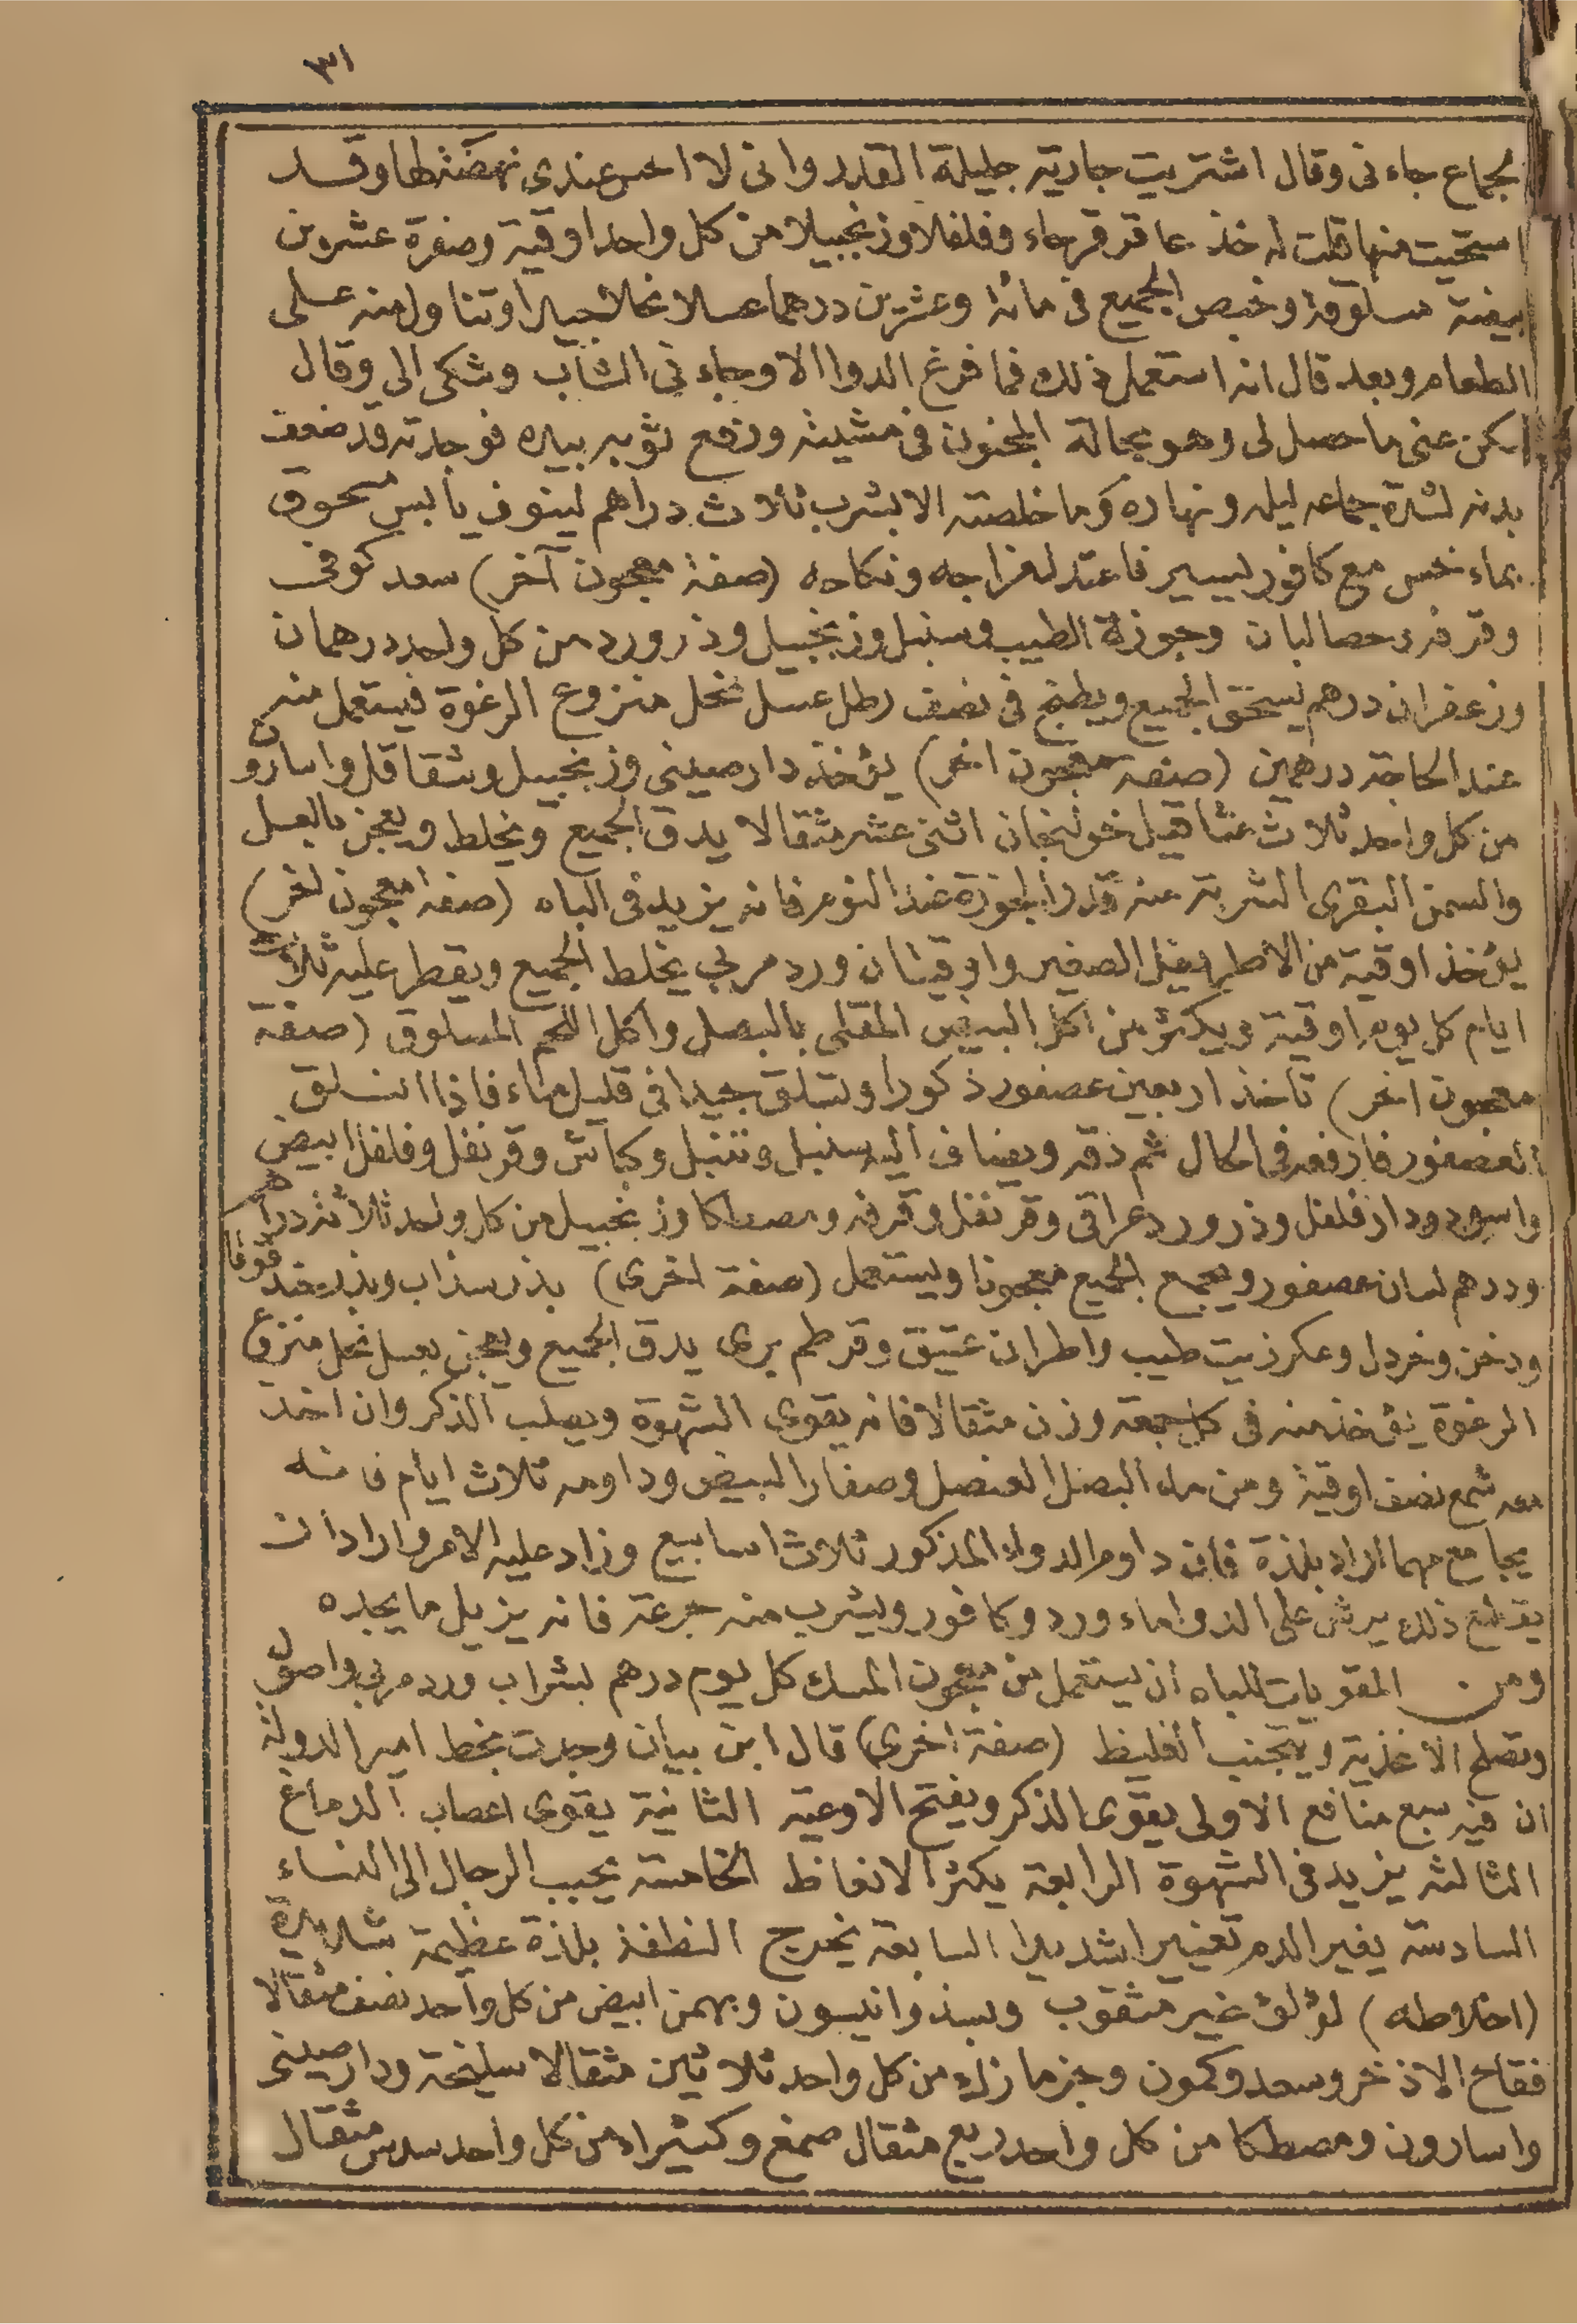 ٣١
بجماع جاءنى وقال اشتريت جارية جليلة القدر وانى لا احس عندى نهضة لها وقد
استحيت منها قلت له خذ عاقر قرحاء وفلفلا وزنجبيلا من كل واحد اوقية وصفرة عشرين
بيضة مسلوقة وخبص الجميع فى مائة وعشرين درهما عسلا نحلا جيدا وتناول منه على
الطعام وبعد قال انه استعمل ذلك فما فرغ الدوا الا وجاء نى الشاب وشكى الي وقال
سكن عنى ما حصل لى وهو بحالة المجنون فى مشيته ورفع ثوبه بيده فوجدته قد ضعف
بدنه لشدة جماعه ليله ونهاره وما خلصته الا بشرب ثلاث دراهم لينوفر يابس مسحوق
بماء خس مع كافور يسير فاعتدل مزاجه ونكاحه (صفة معجون آخر) سعد كوفى
وقرفه وحصا لبان وجوزة الطيب وسنبل وزنجبيل وذرورد من كل واحد درهمان
وزعفران درهم يسحق الجميع ويطبخ فى نصف رطل عسل نحل منزوع الرغوة فيستعمل منه
عند الحاجة درهمين (صفة معجون اخر) يؤخذ دارصينى وزنجبيل وشقاقل واسارون
من كل واحد ثلاث مثاقيل خولنجان اثنى عشر مثقالا يدق الجميع ويخلط ويعجن بالعسل
والسمن البقرى الشربة منه قدر الجوزة عند النوم فانه يزيد فى الباه (صفة معجون اخر)
يؤخذ اوقية من الاطريفل الصغير واوقيتان ورد مربى يخلط الجميع ويفطر عليه ثلاث
ايام كل يوم اوقية ويكثر من اكل البيض المقلى بالبصل واكل اللحم المسلوق (صفة
معجون اخر) تأخذ اربعين عصفور ذكورا وتسلق جيدا فى قليل ماء فاذا انسلق
العصفور فارفعه فى الحال ثم دقه ويضاف اليه سنبل وتنبل وكباش وقرنفل وفلفل ابيض
واسود ودار فلفل وذرورد عراقى وقرنفل وقرفه ومصطكا وزنجبيل من كل واحد ثلاثة دراهم
ودرهم لسان عصفور ويجمع الجميع معجونا ويستعمل (صفة اخرى) بذر سذاب وبذر حندقوقا
ودخن وخردل وعكر زيت طيب واطران عتيق وقرطم برى يدق الجميع ويعجن بعسل نحل منزوع
الرغوة يؤخذ منه فى كل جمعة وزن مثقالا فانه يقوى الشهوة ويصلب الذكر وان اخذ
معه شمع نصف اوقية ومن ماء البصل العنصل وصفار البيض وداومه ثلاث ايام فانه
يجامع مهما اراد بلذة فان داوم الدواء المذكور ثلاث اسابيع وزاد عليه الامر واراد ان
يقطع ذلك يرش على الدوا ماء ورد وكافور ويشرب منه جرعة فانه يزيل ما يجده
ومن المقويات للباه ان يستعمل من معجون المسك كل يوم درهم بشراب ورد مربى واصول
وتصلح الاغذية ويتجنب الغليظ (صفة اخرى) قال ابن بيان وجدت بخط امير الدولة
ان فيه سبع منافع الاولى يقوى الذكر ويفتح الاوعية الثانية يقوى اعصاب الدماغ
الثالثه يزيد فى الشهوة الرابعة يكثر الانعاظ الخامسة يحبب الرجال الى النساء
السادسة يغير الدم تغييرا شديدا السابعة يخرج النطفة بلذة عظيمة شديدة
(اخلاطه) لؤلؤ غير مثقوب وبسذ وانيسون وبهمن ابيض من كل واحد نصف مثقالا
فقاح الاذخر وسعد وكمون وجزمازك من كل واحد ثلاثين مثقالا سليخة ودارصينى
واسارون ومصطكا من كل واحد ربع مثقال صمغ وكثيراء من كل واحد سدس مثقال